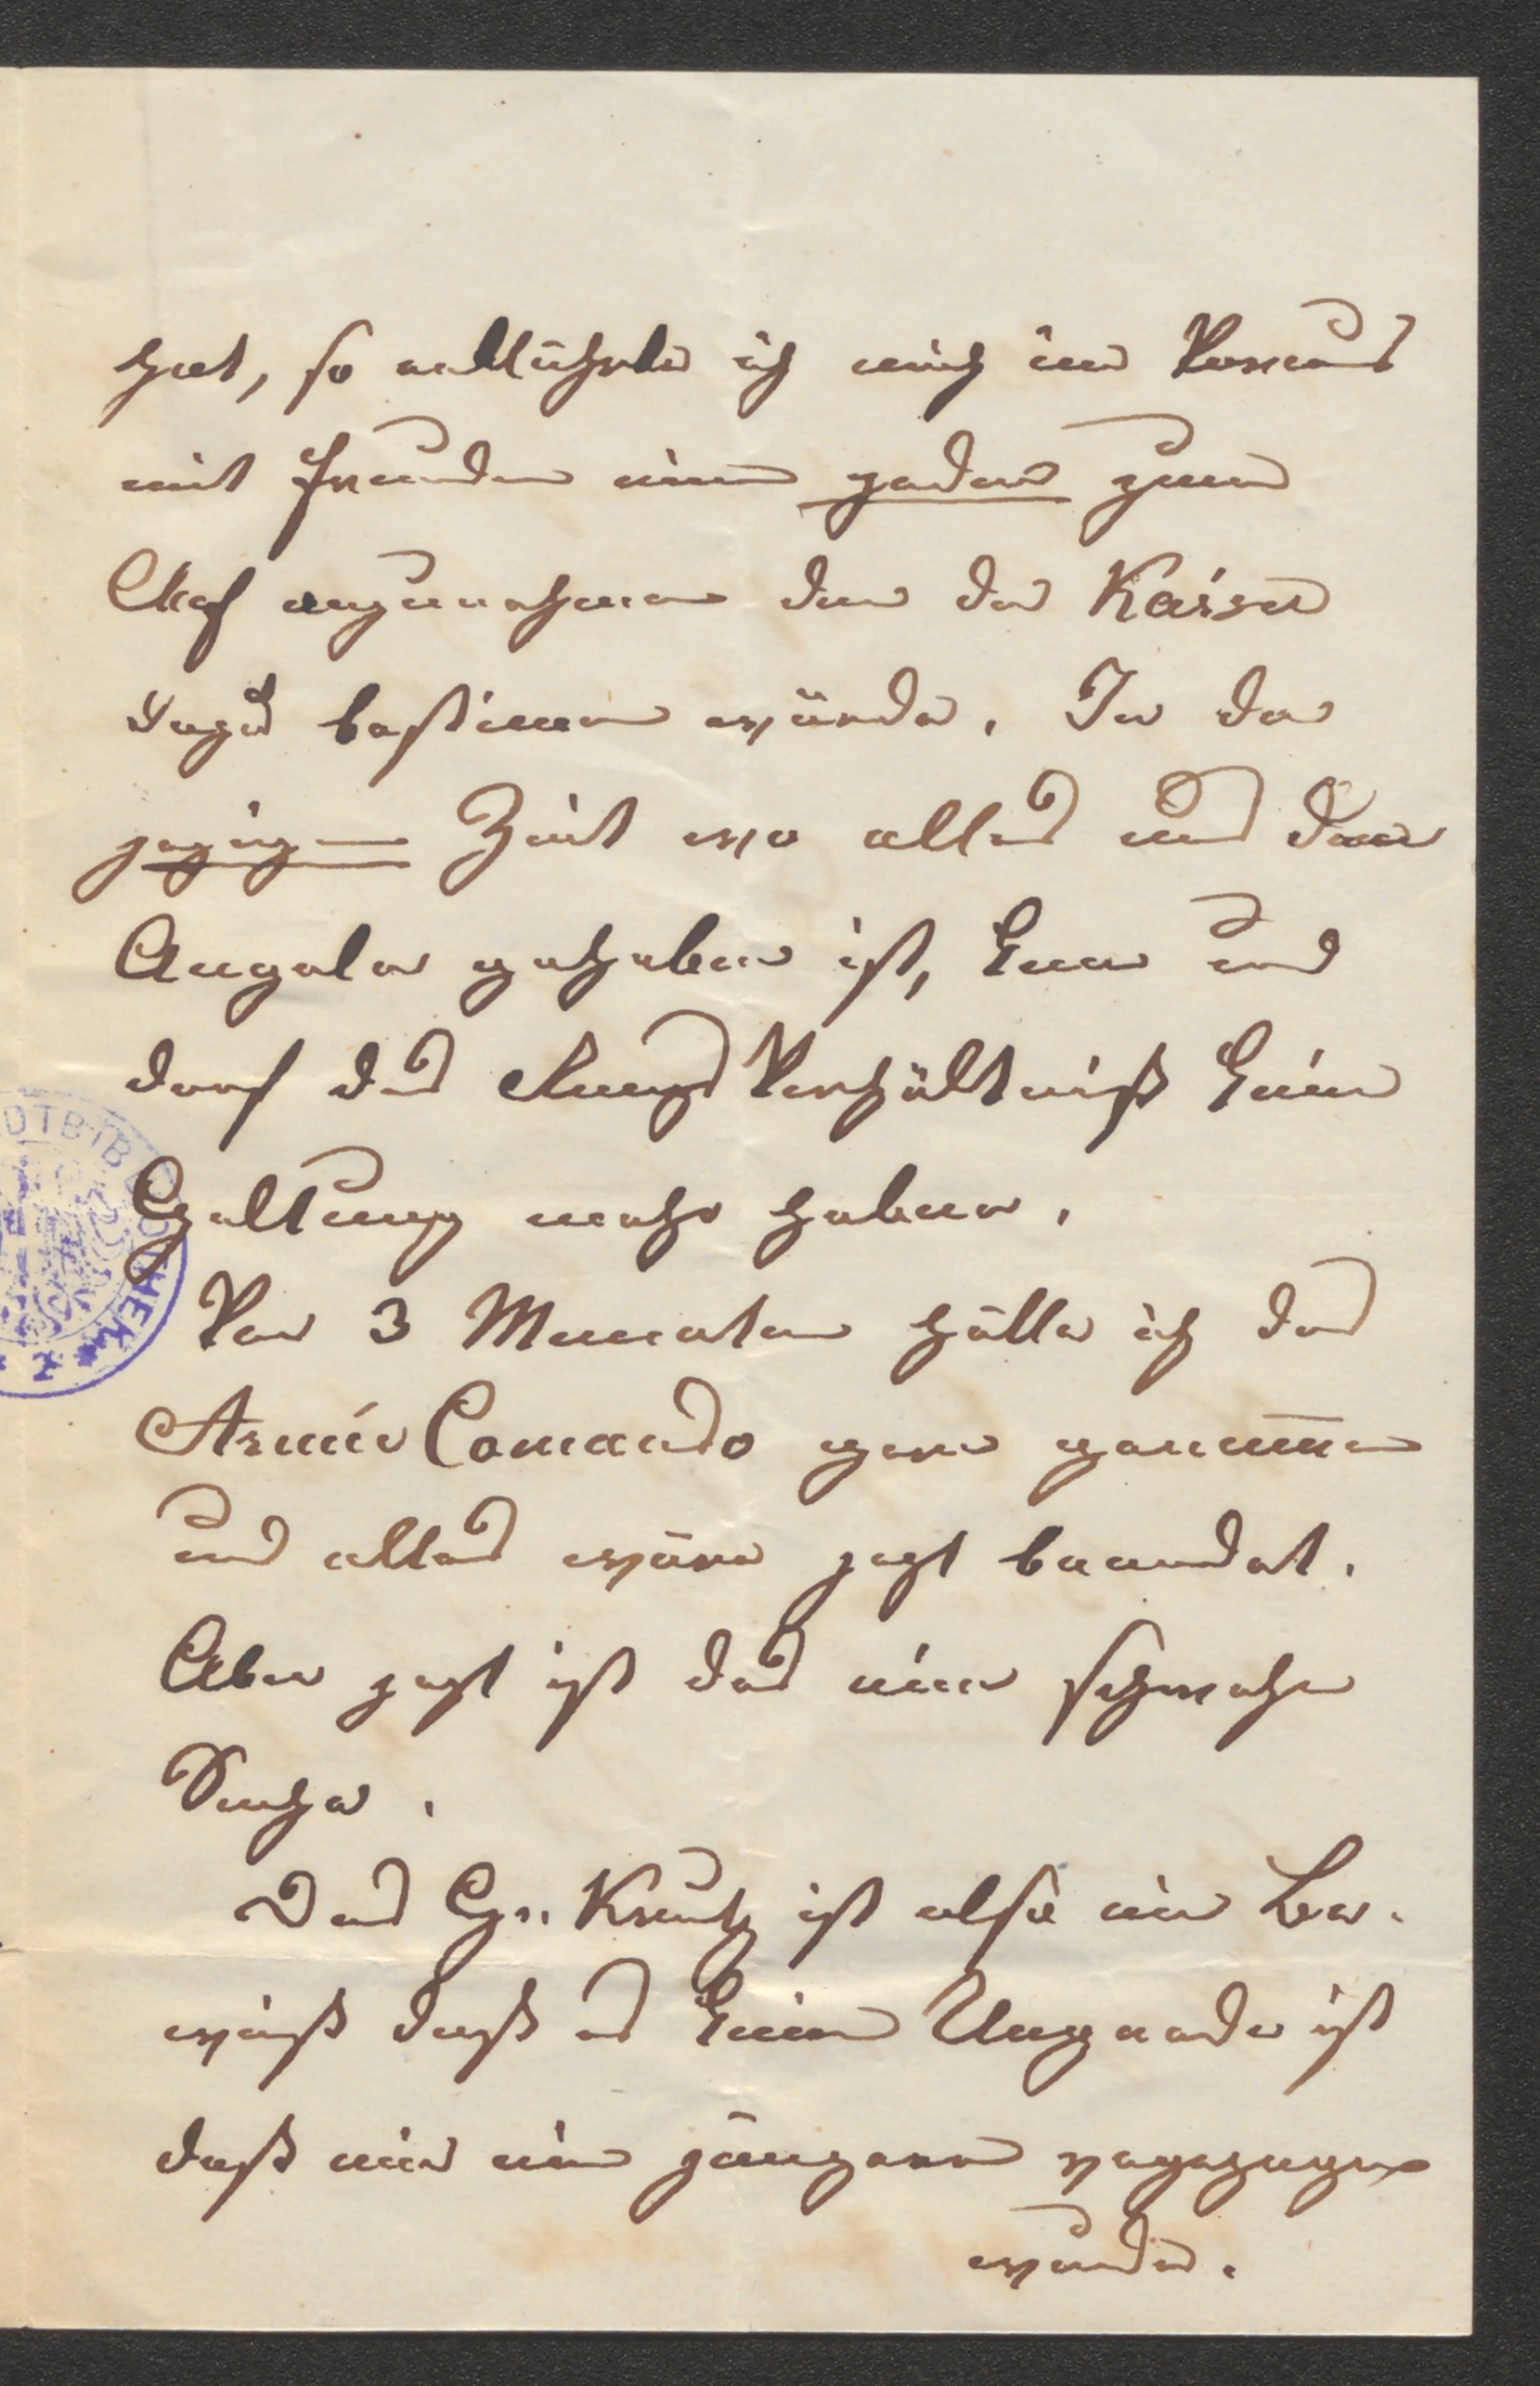 hat, so erklährte ich mich im Voraus
mit Freuden einen jeden zum
Chef anzunehmen den der Kaiser
dazu bestimmen würde. In der
jezigen Zeit wo alles aus den
Angeln gehoben ist, kann und
darf das Rangs Verhältniß keine
Geltung mehr haben.
Vor 3 Monaten hätte ich das
Armée Comando gern genom̄en
und alles wäre jezt beendet.
Aber jezt ist das eine schwehre
Sache.
Das Gr. Kreutz ist also ein Be-
weiß daß es keine Ungnade ist
daß mir ein jüngerer vorgezogen
wurde.
DTBIB THEK